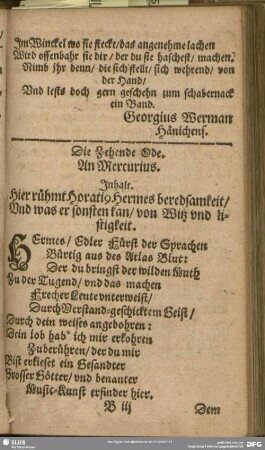 Im Winckel wo sie steckt/das angenehme lachen
Wird offenbahr sie dir/der du sie haschest/machen.
Nimb jhr denn/die sich stellt/sich wehrend/von
der Hand/
Vnd lests doch gern geschehn zum schabernack
ein Band.
Georgius Werman
Hänichens.
Die Zehende Ode.
An Mercurius.
Inhalt.
Hier rühmt Horatiꝰ Hermes beredsamkeit/
Vnd was er sonsten kan/von Witz vnd li-
stigkeit.
HErmes/Edler Fürst der Sprachen
Bürtig aus des Atlas Blut:
Der du bringst der wilden Muth
Zu der Tugend/vnd das machen
Frecher Leute vnterweist/
Durch Verstand-geschicktem Geist/
Durch dein weises angebohren:
Dein lob hab' ich mir erkohren
Zuberühren/der du mir
Bist erkieset ein Gesandter
Grosser Götter/vnd benanter
Music-Kunst erfinder hier.
B iij Dem
SLUB
DFG